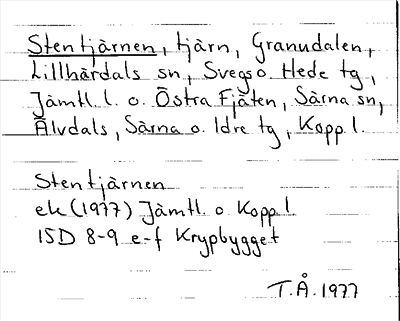 Stentjärnen, tjärn, Granudalen,
Lillhärdals sn, Svegs o. Hede tg,
Jämtl. l. o. Östra Fjäten, Särna sn,
Älvdals, Särna o. Idre tg, Kopp l.
Stentjärnen
ek (1977) Jämtl. o Kopp l
15D 8-9 e-f Krypbygget
T.Å. 1977